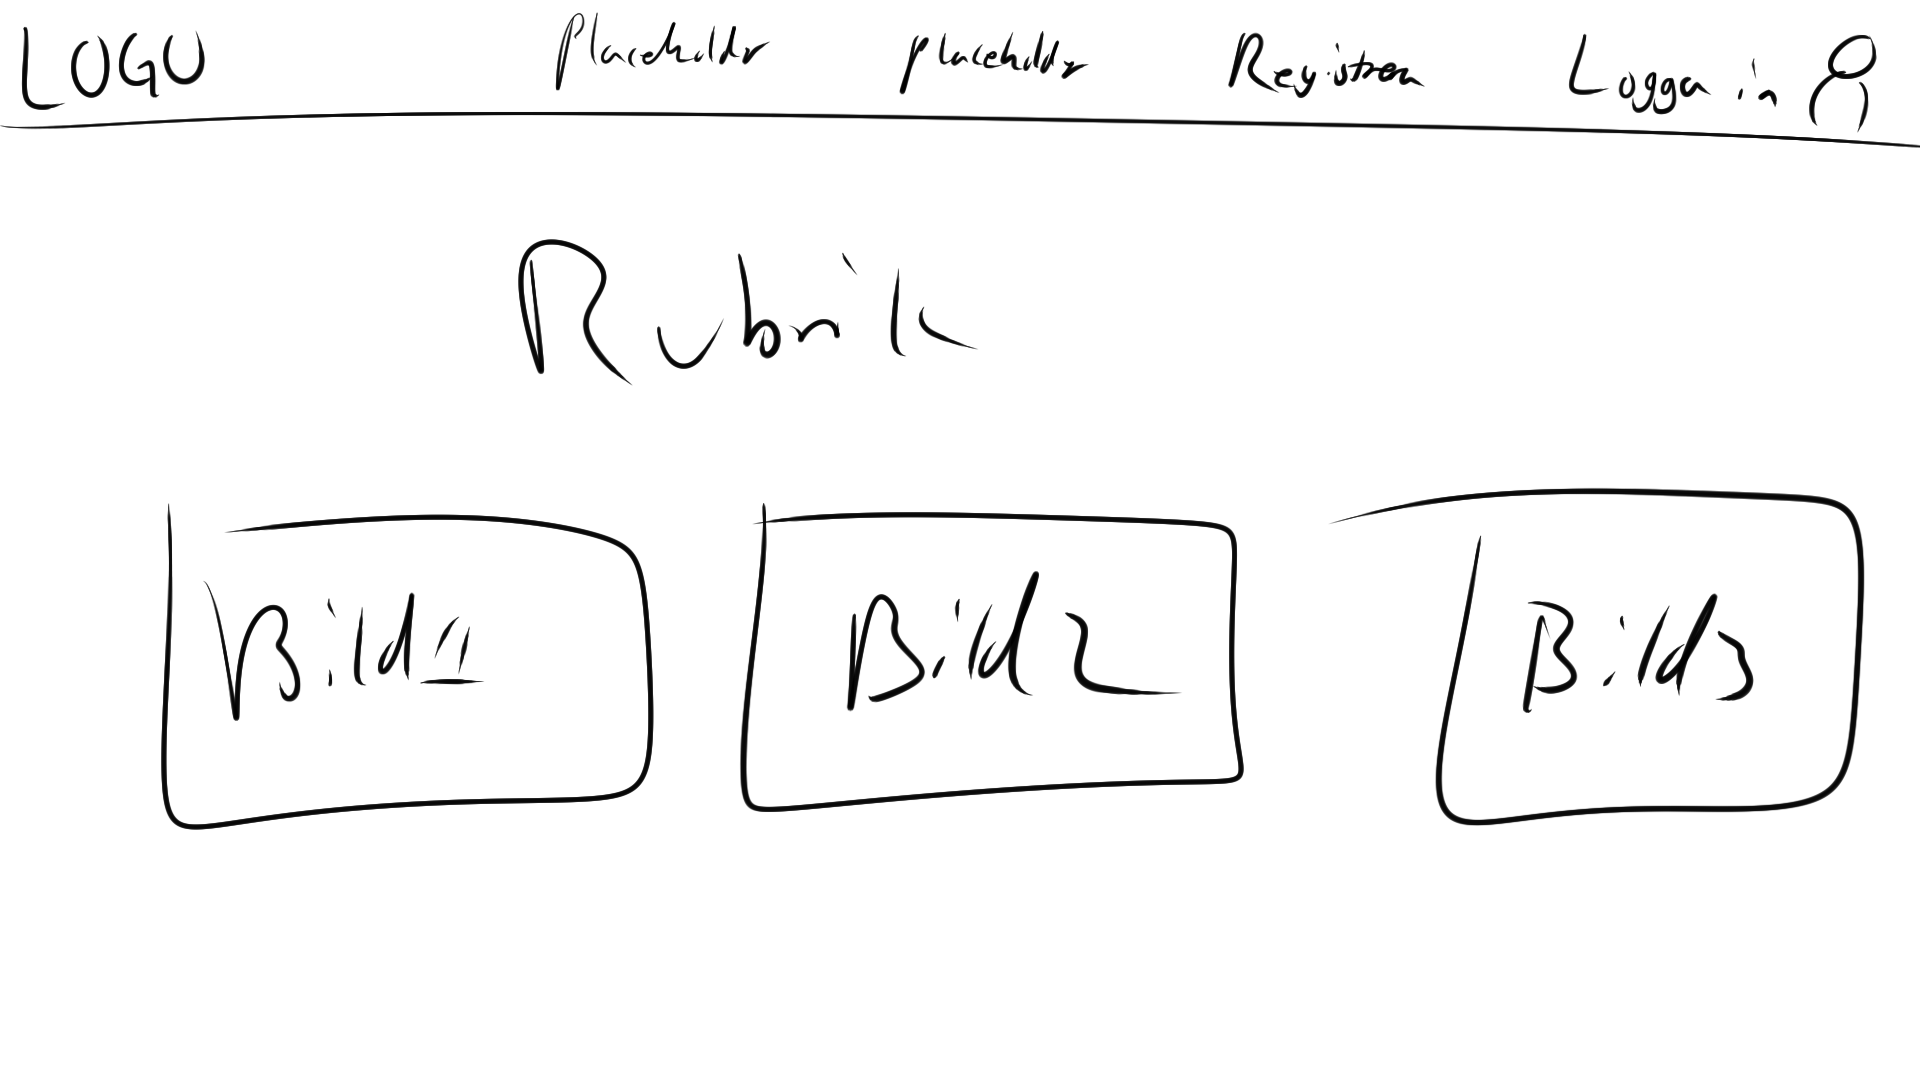 LOGO Placeholdr placeholdr Registrera Logga in
Rubrik
Bild1 Bild2 Bild3